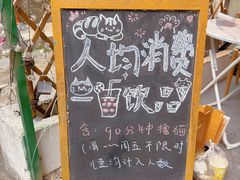 人均消费
一杯饮品
含:90分钟撸猫
(周一~周五不限时
儿童均计入人数